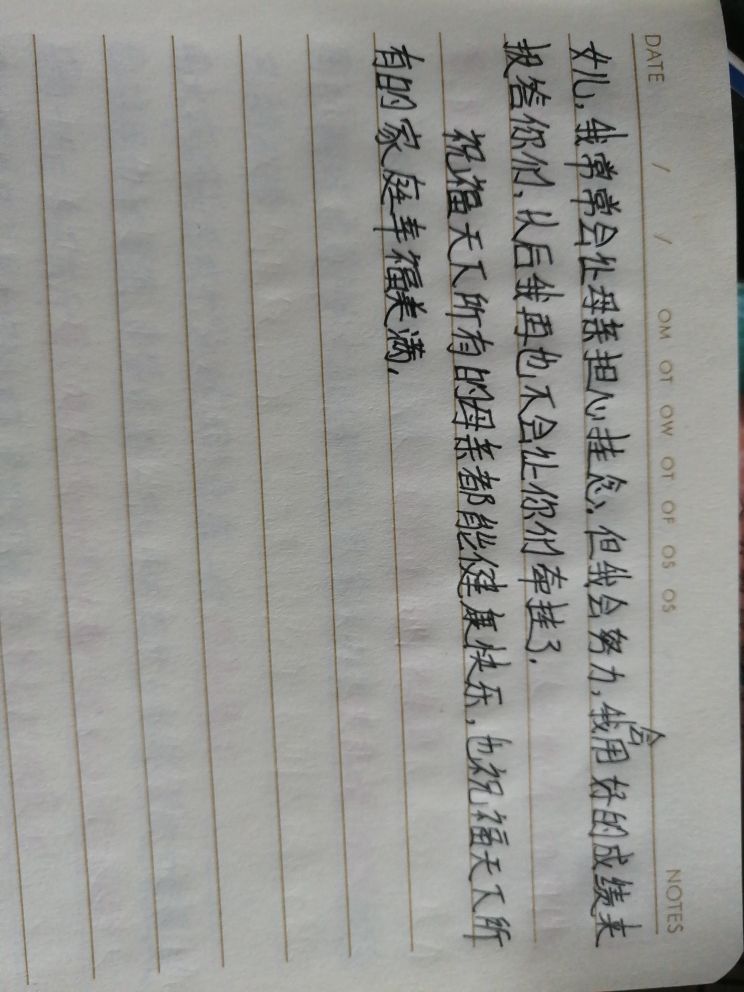 DATE / / OM OT OW OT OF OS OS NOTES
女儿,我常常会让母亲担心挂念,但我会努力,我会用好的成绩来
报答你们,以后我再也不会让你们牵挂了.
祝福天下所有的母亲都能健康快乐,也祝福天下所
有的家庭幸福美满.